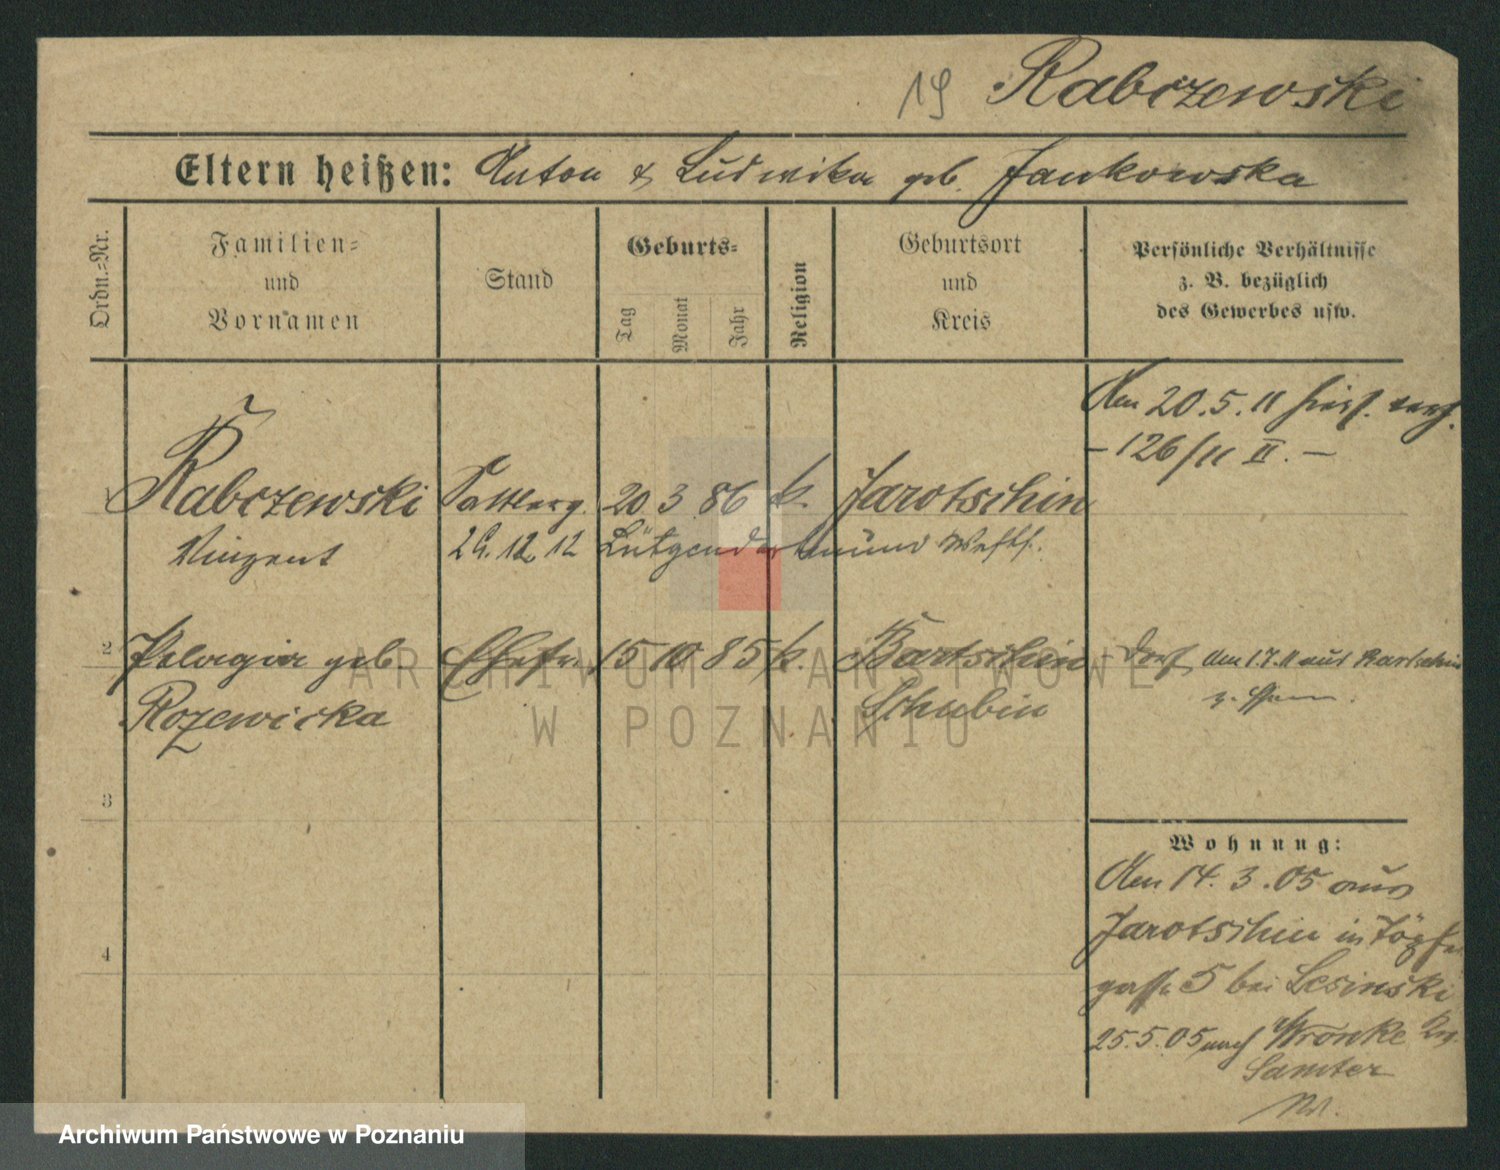 19 Rabczewski
Eltern heißen: Anton & Ludwika geb. Jankowska
Ordn.-Nr.
Familien-
und
Vornamen
Stand
Geburts-
Tag
Monat
Jahr
Religion
Geburtsort
und
Kreis
Persönliche Verhältnisse
z. B. bezüglich
des Gewerbes usw.
Am 20.5.11 hier
- 126/11 II. -
1 Rabczewski 20 3 86 k. Jarotschin
Vinzent
29.12.12 Lütgendortmund Westf.
2 Pelagia geb. Ehefr. 15 10 85 k. Bartschin
Rozewicka Schubin
am 1.7.11 aus Bartschin
3
Wohnung:
Am 14.3.05 aus
Jarotschin in Töpfer
gasse 5 bei Lesinski
4
25.5.05 nach Wronke Kr.
Samter
ARCHIWUM PAŃSTWOWE
W POZNANIU
Archiwum Państwowe w Poznaniu